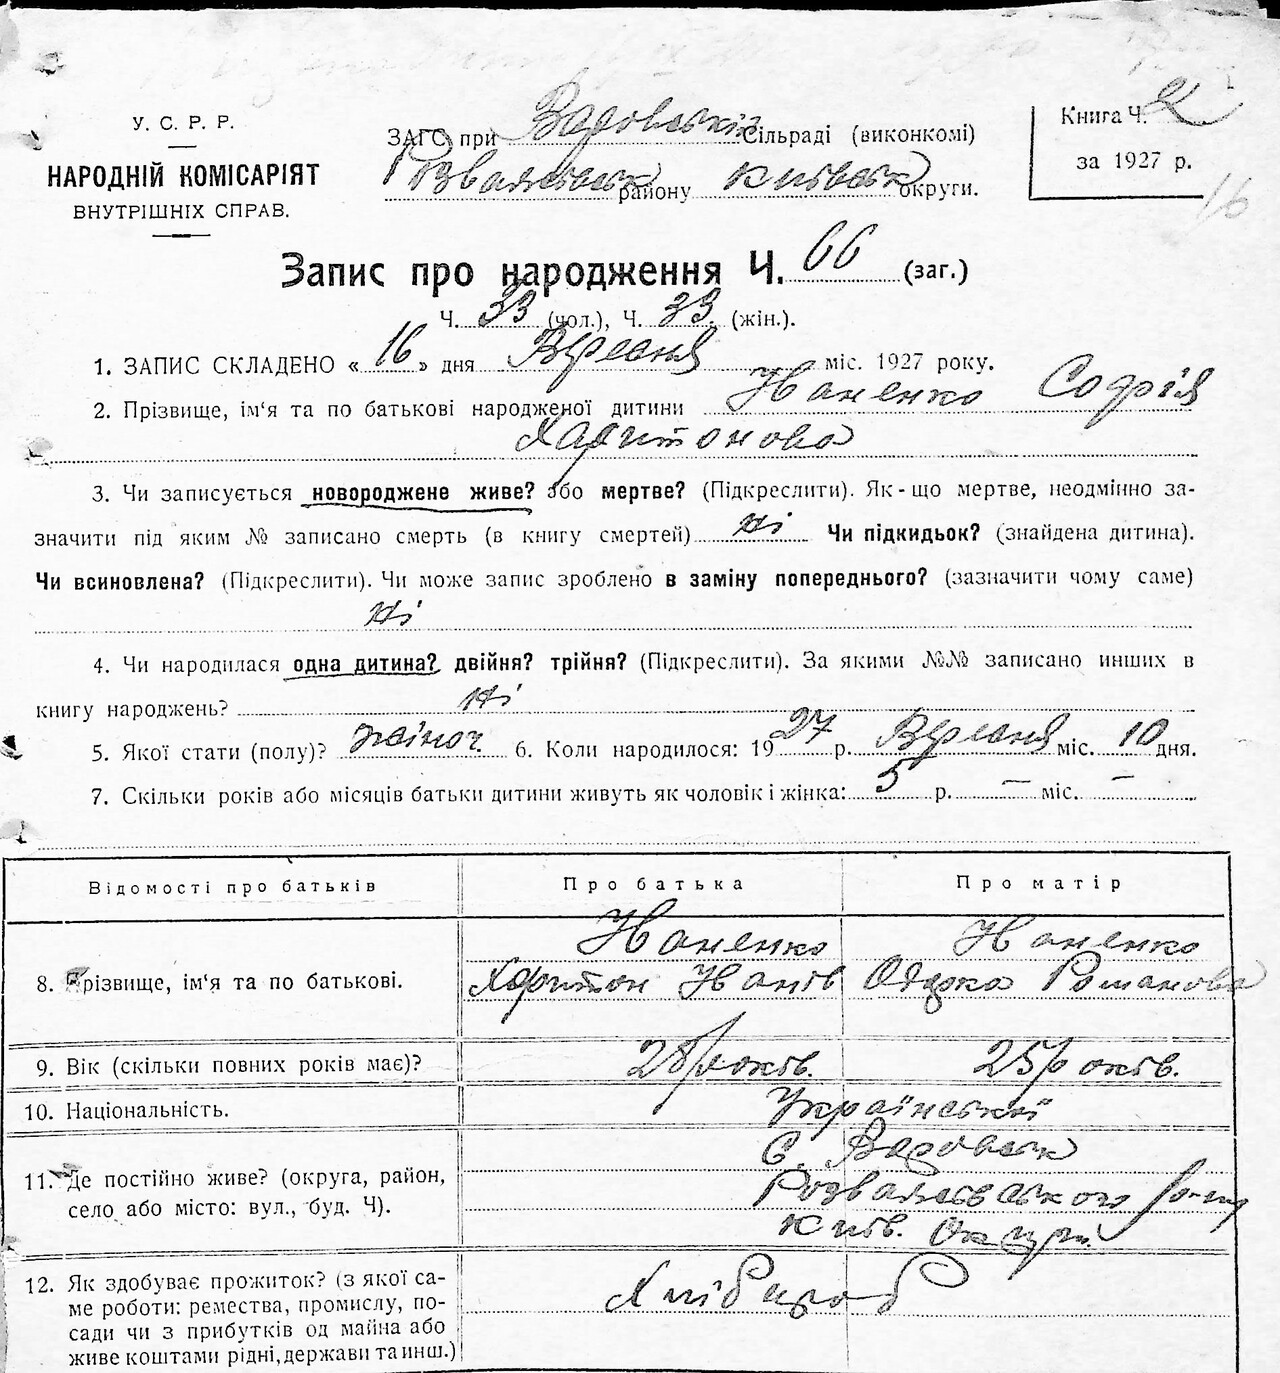 У. С. Р. Р.
НАРОДНІЙ КОМІСАРІЯТ
ВНУТРІШНІХ СПРАВ.
ЗАГС при Варовській Сільраді (виконкомі)
Розважівськ району Київськ округи.
Книга Ч. 2
за 1927 р.
16
Запис про народження Ч. 66 (заг.)
Ч. 33 (чол.), Ч. 33. (жін.).
1. ЗАПИС СКЛАДЕНО « 16 » дня Вересня міс. 1927 року.
2. Прізвище, ім'я та по батькові народженої дитини Іваненко Софія
Харитонова
3. Чи записується новороджене живе? або мертве? (Підкреслити). Як-що мертве, неодмінно за-
значити під яким № записано смерть (в книгу смертей) ні Чи підкидьок? (знайдена дитина).
Чи всиновлена? (Підкреслити). Чи може запис зроблено в заміну попереднього? (зазначити чому саме)
ні
4. Чи народилася одна дитина? двійня? трійня? (Підкреслити). За якими №№ записано инших в
книгу народжень? ні
5. Якої стати (полу)? жіноч. 6. Коли народилося: 1927 р. Вересня міс. 10 дня.
7. Скільки років або місяців батьки дитини живуть як чоловік і жінка: 5 р. — міс. —
Відомості про батьків Про батька Про матір
Іваненко Іваненко
8. Прізвище, ім'я та по батькові. Харитон Іванів Романова
9. Вік (скільки повних років має)? 28 років. 25 років.
10. Національність. Українські
11. Де постійно живе? (округа, район,
село або місто: вул., буд. Ч).
с. Варовськ
Розважівського р-ну
Київ. Округи
12. Як здобуває прожиток? (з якої са-
ме роботи: ремества, промислу, по-
сади чи з прибутків од майна або
живе коштами рідні, держави та инш.)
Хлібороб